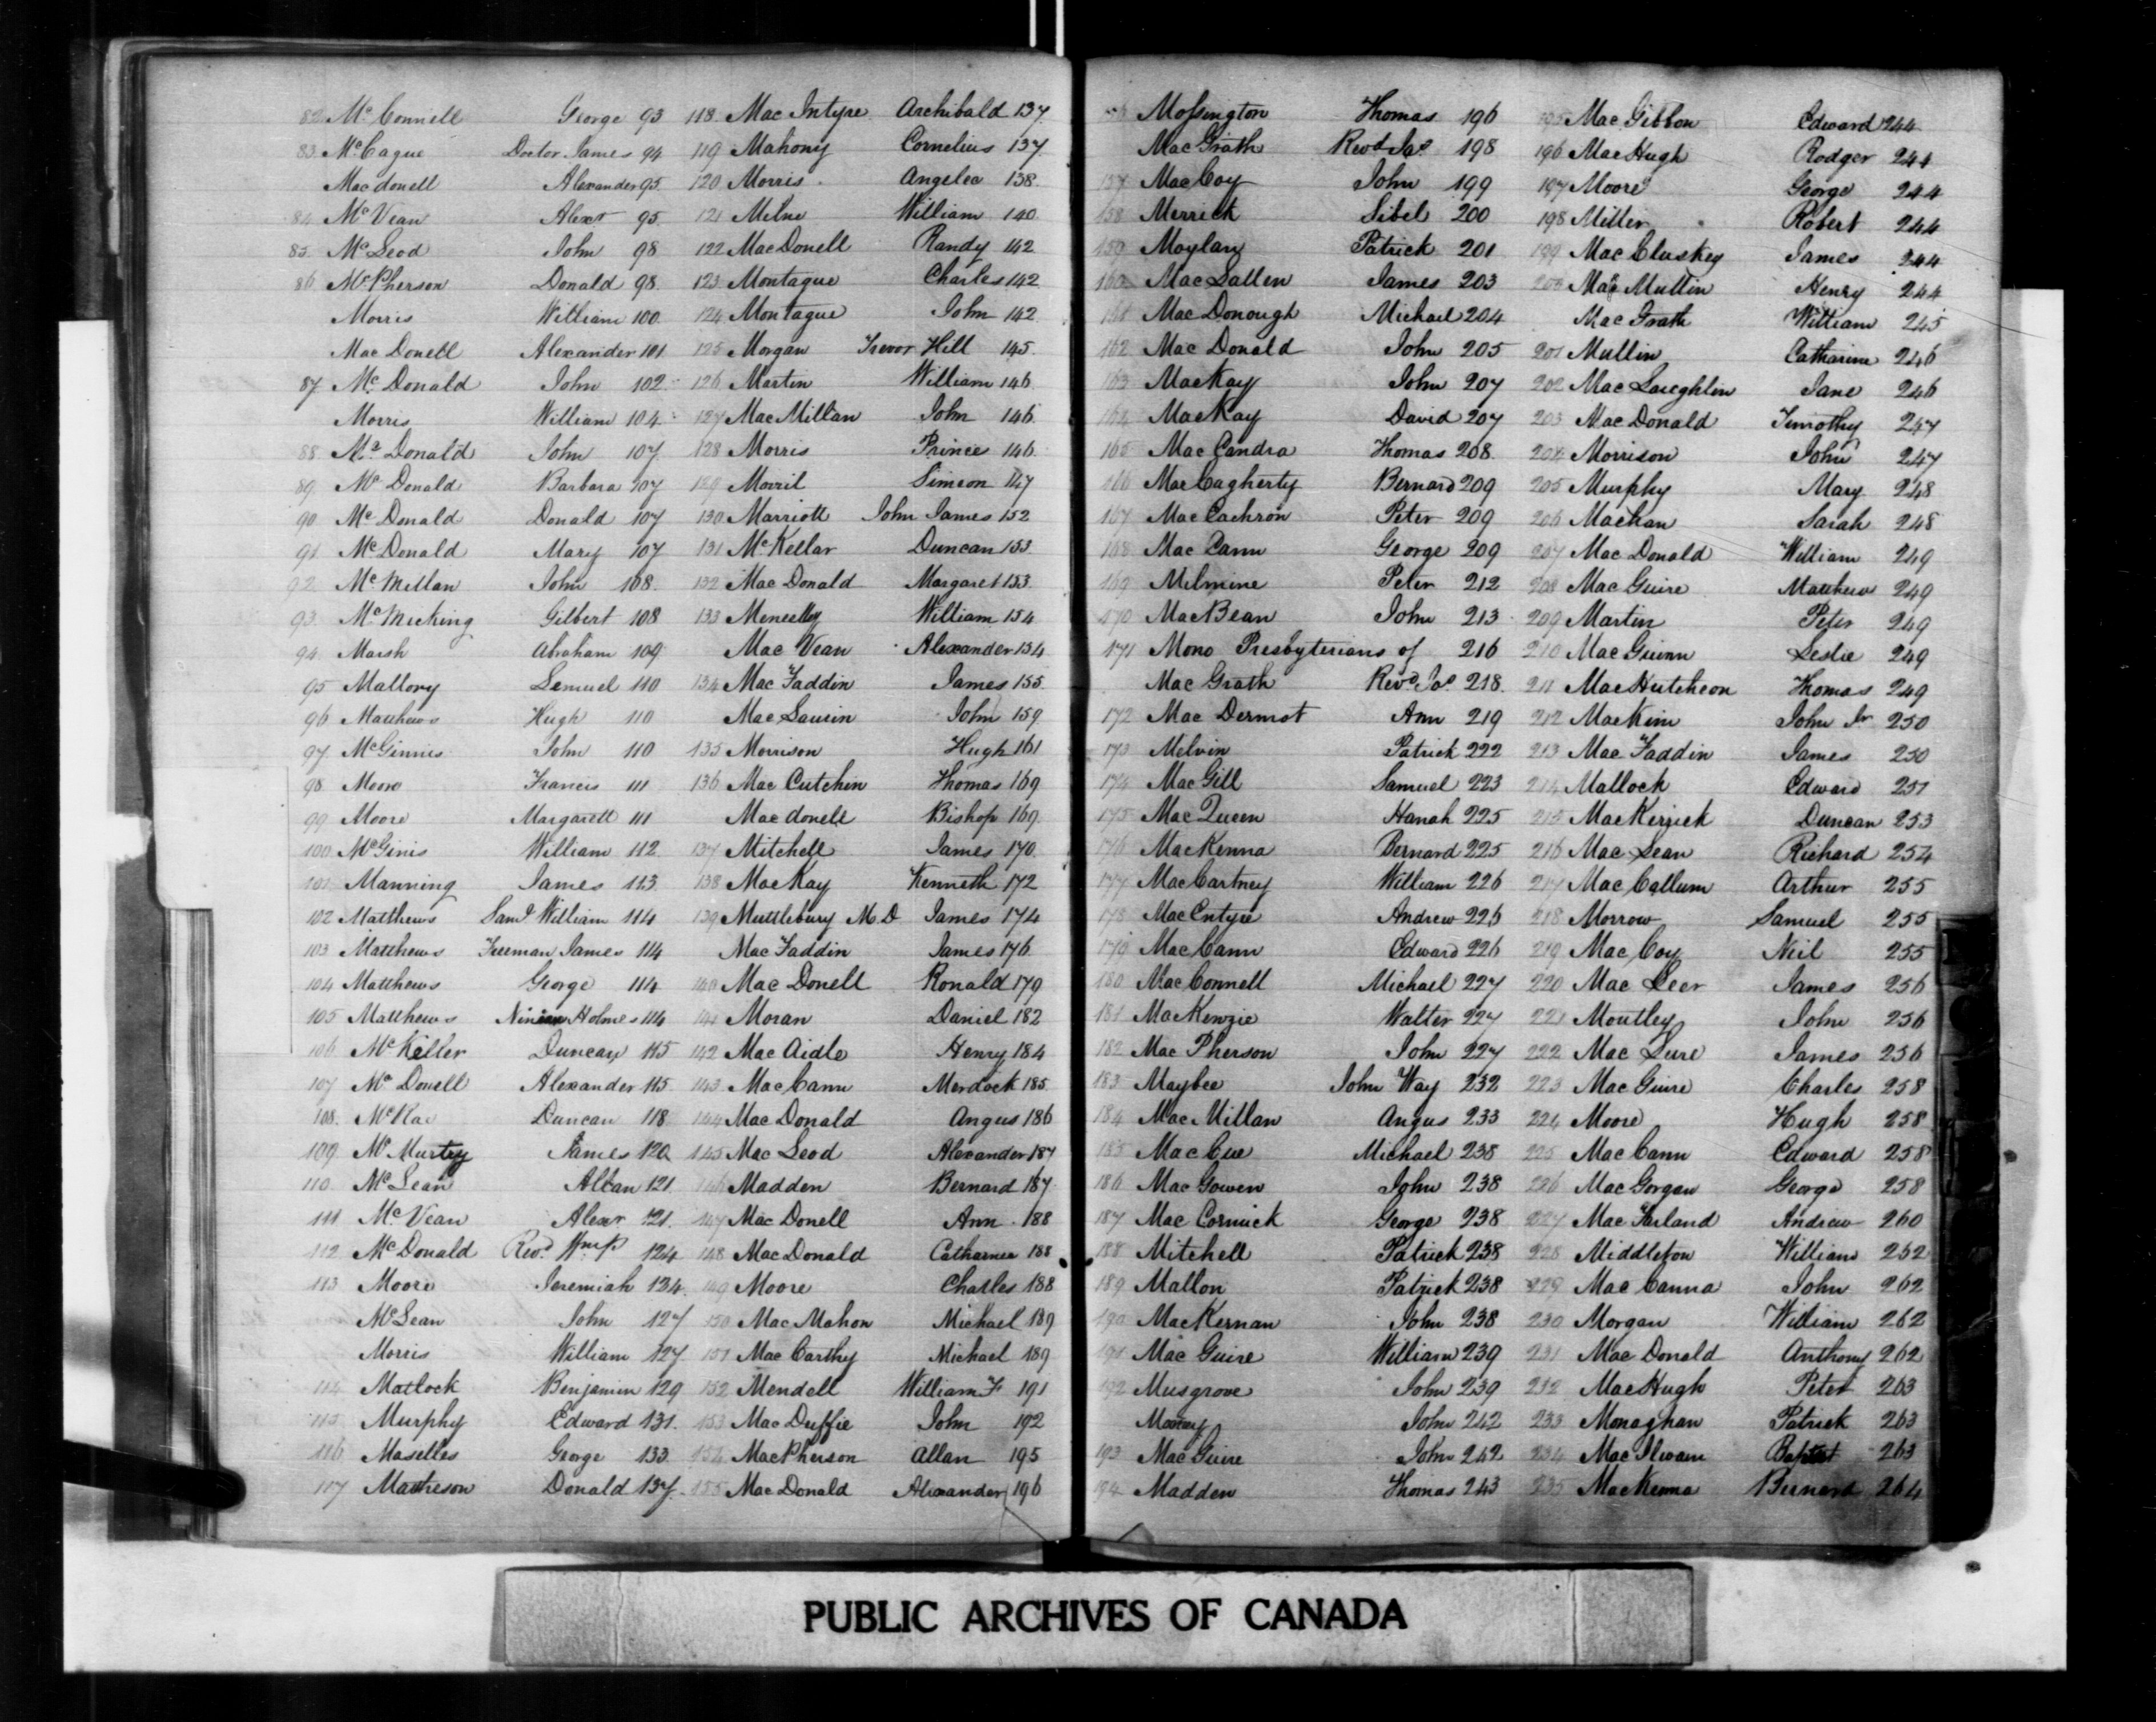 82 Mc Connell George 93
83 McCague Doctor James 94
Macdonell Alexander 95
84 Mc Vean Alexr 95
85 Mc Leod John 98
86 McPherson Donald 98
Morris William 100
Mac Donell Alexander 101
87 Mc Donald John 102
Morris William 104
88 Mc Donald John 107
89 Mc Donald Barbara 107
90 Mc Donald Donald 107
91 Mc Donald Mary 107
92 Mc Millan John 108
93 Mc Micking Gilbert 108
94 Marsh Abraham 109
95 Mallory Lemuel 110
96 Matthews Hugh 110
97 McGinnis John 110
98 Moore Francis 111
99 Moore Margarett 111
100 McGinis William 112
101 Manning James 113
102 Matthews Saml William 114
103 Matthews Freeman James 114
104 Matthews George 114
105 Matthews Ninian Holmes 114
106 McKeller Duncan 115
107 Mc Donell Alexander 115
108 McRae Duncan 118
109 Mc Murtry James 120
110 McLean Allan 121
111 Mc Vean Alexr 121
112 McDonald Revd Wm P. 124
113 Moore Jeremiah 124
McLean John 127
Morris William 127
114 Matlock Benjamin 129
115 Murphy Edward 131
116 Maselles George 133
117 Matheson Donald 137
118 Mac Intyre Archibald 137
119 Mahony Cornelius 137
120 Morris Angelea 138
121 Milne William 140
122 MacDonell Randy 142
123 Montague Charles 142
124 Montague John 142
125 Morgan Trevor Hill 145
126 Martin William 146
127 MacMillan John 146
128 Morris Prince 146
129 Morril Simeon 147
130 Marriott John James 152
131 McKellar Duncan 153
132 Mac Donald Margaret 153
133 Meneelly William 154
Mac Vean Alexander 154
134 Mac Faddin James 155
Mac Laurin John 159
135 Morrison Hugh 161
136 Mac Cutchin Thomas 169
Macdonell Bishop 169
137 Mitchell James 170
138 MacKay Kenneth 172
139 Muttlebury M D James 174
Mac Faddin James 176
140 Mac Donell Ronald 179
141 Moran Daniel 182
142 Mac Aidle Henry 184
143 MacCann Merdock 185
144 Mac Donald Angus 186
145 Mac Leod Alexander 187
146 Madden Bernard 187
147 Mac Donell Ann 188
148 Mac Donald Catharine 188
149 Moore Charles 188
150 Mac Mahon Michael 189
151 Mac Carthy Michael 189
152 Mendell William F 191
153 Mac Duffie John 192
154 MacPherson Allan 195
155 Mac Donald Alexander 196
156 Mossington Thomas 196
MacGrath Revd Jas 198
157 MacCoy John 199
158 Merrick Sibel 200
159 Moylan Patrick 201
160 MacLallen James 203
161 Mac Donough Michael 204
162 Mac Donald John 205
163 MacKay John 207
164 MacKay David 207
165 Mac Candra Thomas 208
166 MacCagherty Bernard 209
167 MacCachron Peter 209
168 Mac Cann George 209
169 Milmine Peter 212
170 MacBean John 213
171 Mono Presbyterians of 216
Mac Grath Revd Jas 218
172 Mac Dermot Ann 219
173 Melvin Patrick 222
174 MacGill Samuel 223
175 Mac Queen Hanah 225
176 MacKenna Bernard 225
177 MacCartney William 226
178 MacEntyre Andrew 226
179 MacCann Edward 226
180 MacConnell Michael 227
181 MacKenzie Walter 227
182 Mac Pherson John 227
183 Maybee John Way 232
184 Mac Millan Angus 233
185 MacCue Michael 238
186 Mac Gowen John 238
187 Mac Cormick George 238
188 Mitchell Patrick 238
189 Mallon Patrick 238
190 MacKernan John 238
191 Mac Guire William 239
192 Musgrove John 239
John 242
193 MacGuire John 242
194 Madden Thomas 243
195 Mac Gibbon Edward 244
196 MacHugh Rodger 244
197 Moore George 244
198 Miller Robert 244
199 Mac Cluskey James 244
200 Mac Mullin Henry 244
Mac Grath William 245
201 Mullin Catharine 246
202 Mac Laughlin Jane 246
203 Mac Donald Timothy 247
204 Morrison John 247
205 Murphy Mary 248
206 Machan Sarah 248
207 Mac Donald William 249
208 Mac Guire Matthew 249
209 Martin Peter 249
210 Mac Guinn Leslie 249
211 MacHutcheon Thomas 249
212 MacKim John Jr 250
213 Mac Faddin James 250
214 Mallock Edward 251
215 MacKerrick Duncan 253
216 Mac Lean Richard 254
217 Mac Callum Arthur 255
218 Morrow Samuel 255
219 Mac Coy Neil 255
220 Mac Leer James 256
221 Moutley John 256
222 Mac Lure James 256
223 Mac Guire Charles 258
224 Moore Hugh 258
225 Mac Cann Edward 258
226 Mac Gorgan George 258
227 Mac Farland Andrew 260
228 Middleton William 262
229 Mac Canna John 262
230 Morgan William 262
231 Mac Donald Anthony 262
232 MacHugh Peter 263
233 Monaghan Patrick 263
234 Mac Ilwain 263
235 MacKenna Bernard 264
PUBLIC ARCHIVES OF CANADA